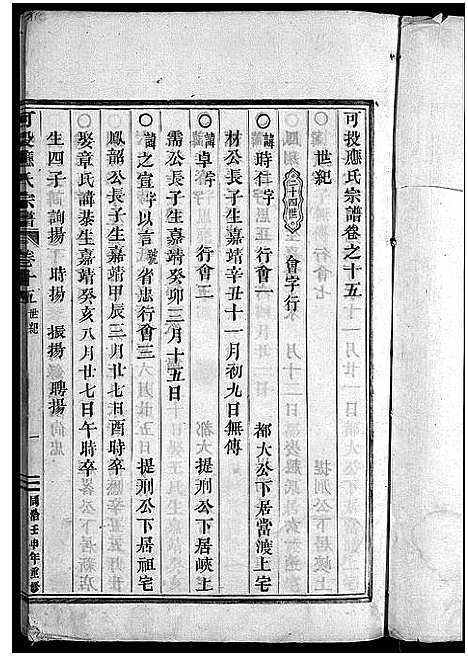 可投應氏宗譜卷之十五
世紀
二十四世 會字行
○諱時仁字 行會一 都大公下居當渡上宅
材公長子生嘉靖辛丑十一月初九日無傳
○諱卓字 行會二 提刑公下居峽上
需公長子生嘉靖癸卯三月十五日
○諱之宣字以言號省惠行會三 提刑公下居祖宅
鳳韶公長子生嘉靖甲辰三月廿七日酉時卒
娶章氏諱恭生嘉靖癸亥八月廿七日午時卒
生四子 詢揚 時揚 振揚 聘揚
可投應氏宗譜 卷十五 世紀 一 同治壬申年重修